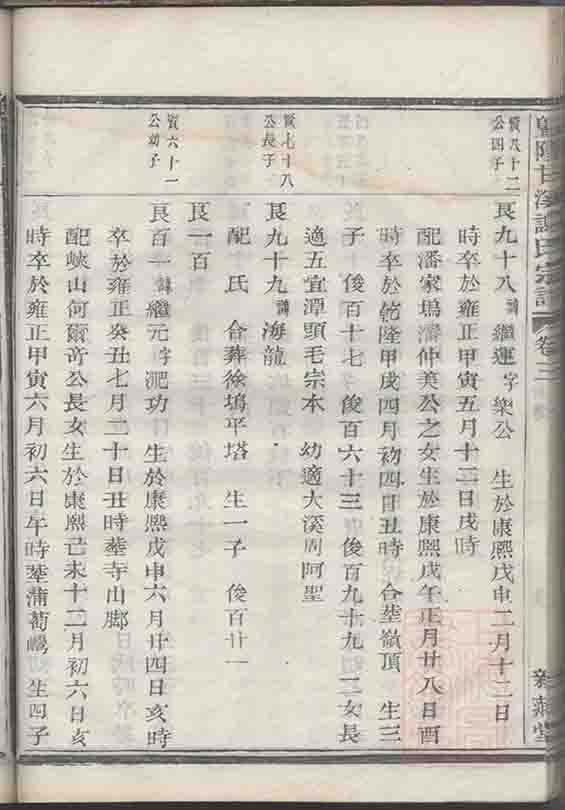 甘溪謝氏宗譜 卷三
賢八十二
公四子
良九十八 諱繼運字樂公 生於康熙戊申二月十二日
時卒於雍正甲寅五月十二日戌時
配潘家塢潘仲美公之女生於康熙戊午正月廿八日酉
時卒於乾隆甲戌四月初四日丑時 合塟嶺頂 生三
子 俊百十七 俊百六十三 俊百九十九 二女長
適五宜潭頭毛宗本 幼適大溪周阿聖
賢七十八
公長子
良九十九 諱海龍
配 氏 合葬徐塢平塔 生一子 俊百廿一
良一百
賢六十一
公幼子
良百一 諱繼元字淝功 生於康熙戊申六月廿四日亥時
卒於雍正癸丑七月二十日丑時塟寺山脚
配峽山何爾奇公長女生於康熙己未十二月初六日亥
時卒於雍正甲寅六月初六日午時塟蒲萄嶋 生四子